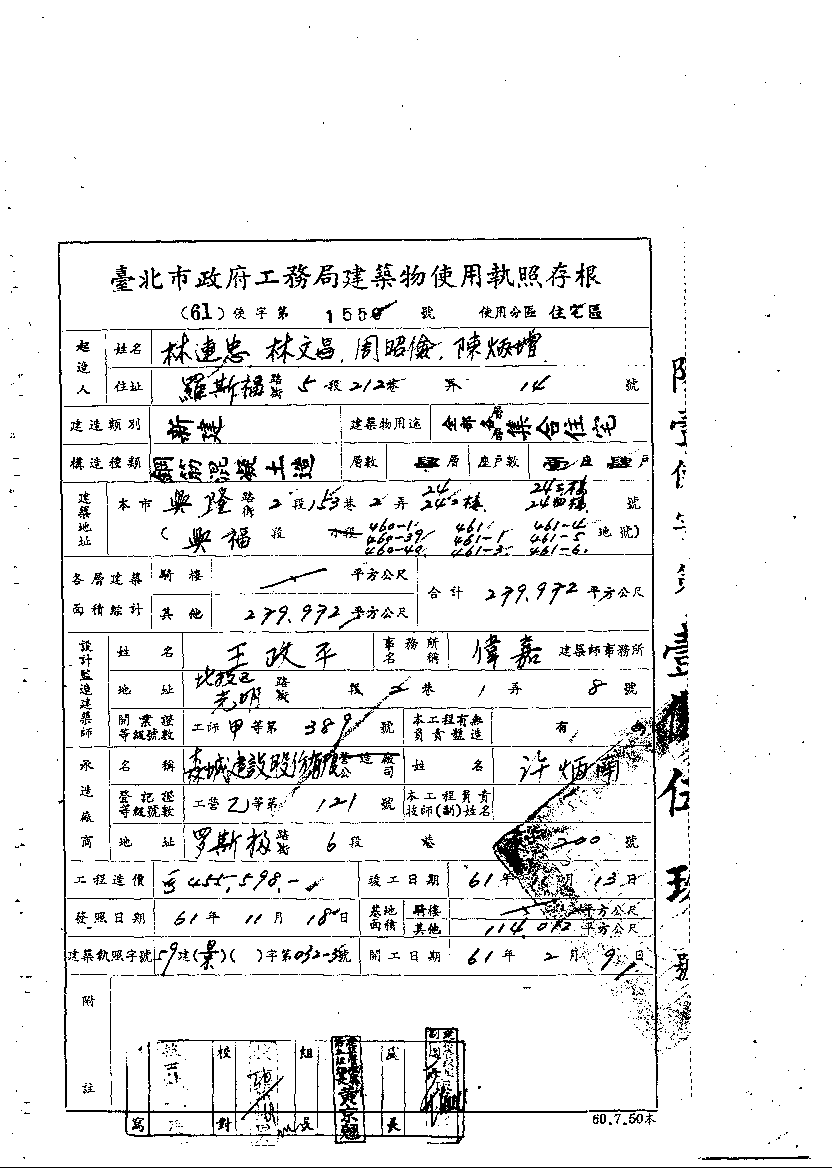 臺北市政府工務局建築物使用執照存根
(61)使字第 1550 號 使用分區 住宅區
起造人 姓名 林連忠 林文昌、周昭儉、陳炳增
住址 羅斯福路街 5 段 212巷 弄 14 號
建造類別 新建 建築物用途 全部各層 集合住宅
構造種類 鋼筋混凝土造 層數 層 座戶數 座 戶
建築地址 本市 興隆 路街 2 段 153巷 2 弄 24 24二棟 24三棟 24四棟 號
(興福 段 小段 460-1 460-39 460-40 461 461-1 461-3 461-4 461-5 461-6 地號)
各層建築面積綜計 騎樓 平方公尺 合計 279.972 平方公尺
其他 279.972 平方公尺
設計監造建築師 姓名 王政平 事務所名稱 偉嘉 建築師事務所
地址 北投區光明 路街 段 2 巷 1 弄 8 號
開業證等級號數 工師甲等第 389 號 本工程有無負責監造 有
承造廠商 名稱 森城建設股份有限公司 營造廠 姓名 許炳南
登記證等級號數 工營乙等第 121 號 本工程負責技師(副)姓名
地址 罗斯福 路街 6 段 巷 200 號
工程造價 455,598.- 竣工日期 61年 月 13日
發照日期 61年 11月 18日 基地面積 騎樓 平方公尺
其他 114.012 平方公尺
建築執照字號 59建(景)( )字第032-3號 開工日期 61年 2月 9日
附註
寫 校對 組長 黃京 長
60.7.50本